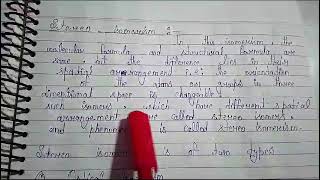 Stereo isomerism :
In this isomerism, the
molecular formula and structural formula are
same but the difference lies in their
spatial arrangement i.e. the orientation
of the atoms or groups in three
dimentional space is changeable.
such isomers, which have different spatial
arrangement are called stereo isomers
and phenomenon is called stereo isomerism.
Stereo isomerism is of two types